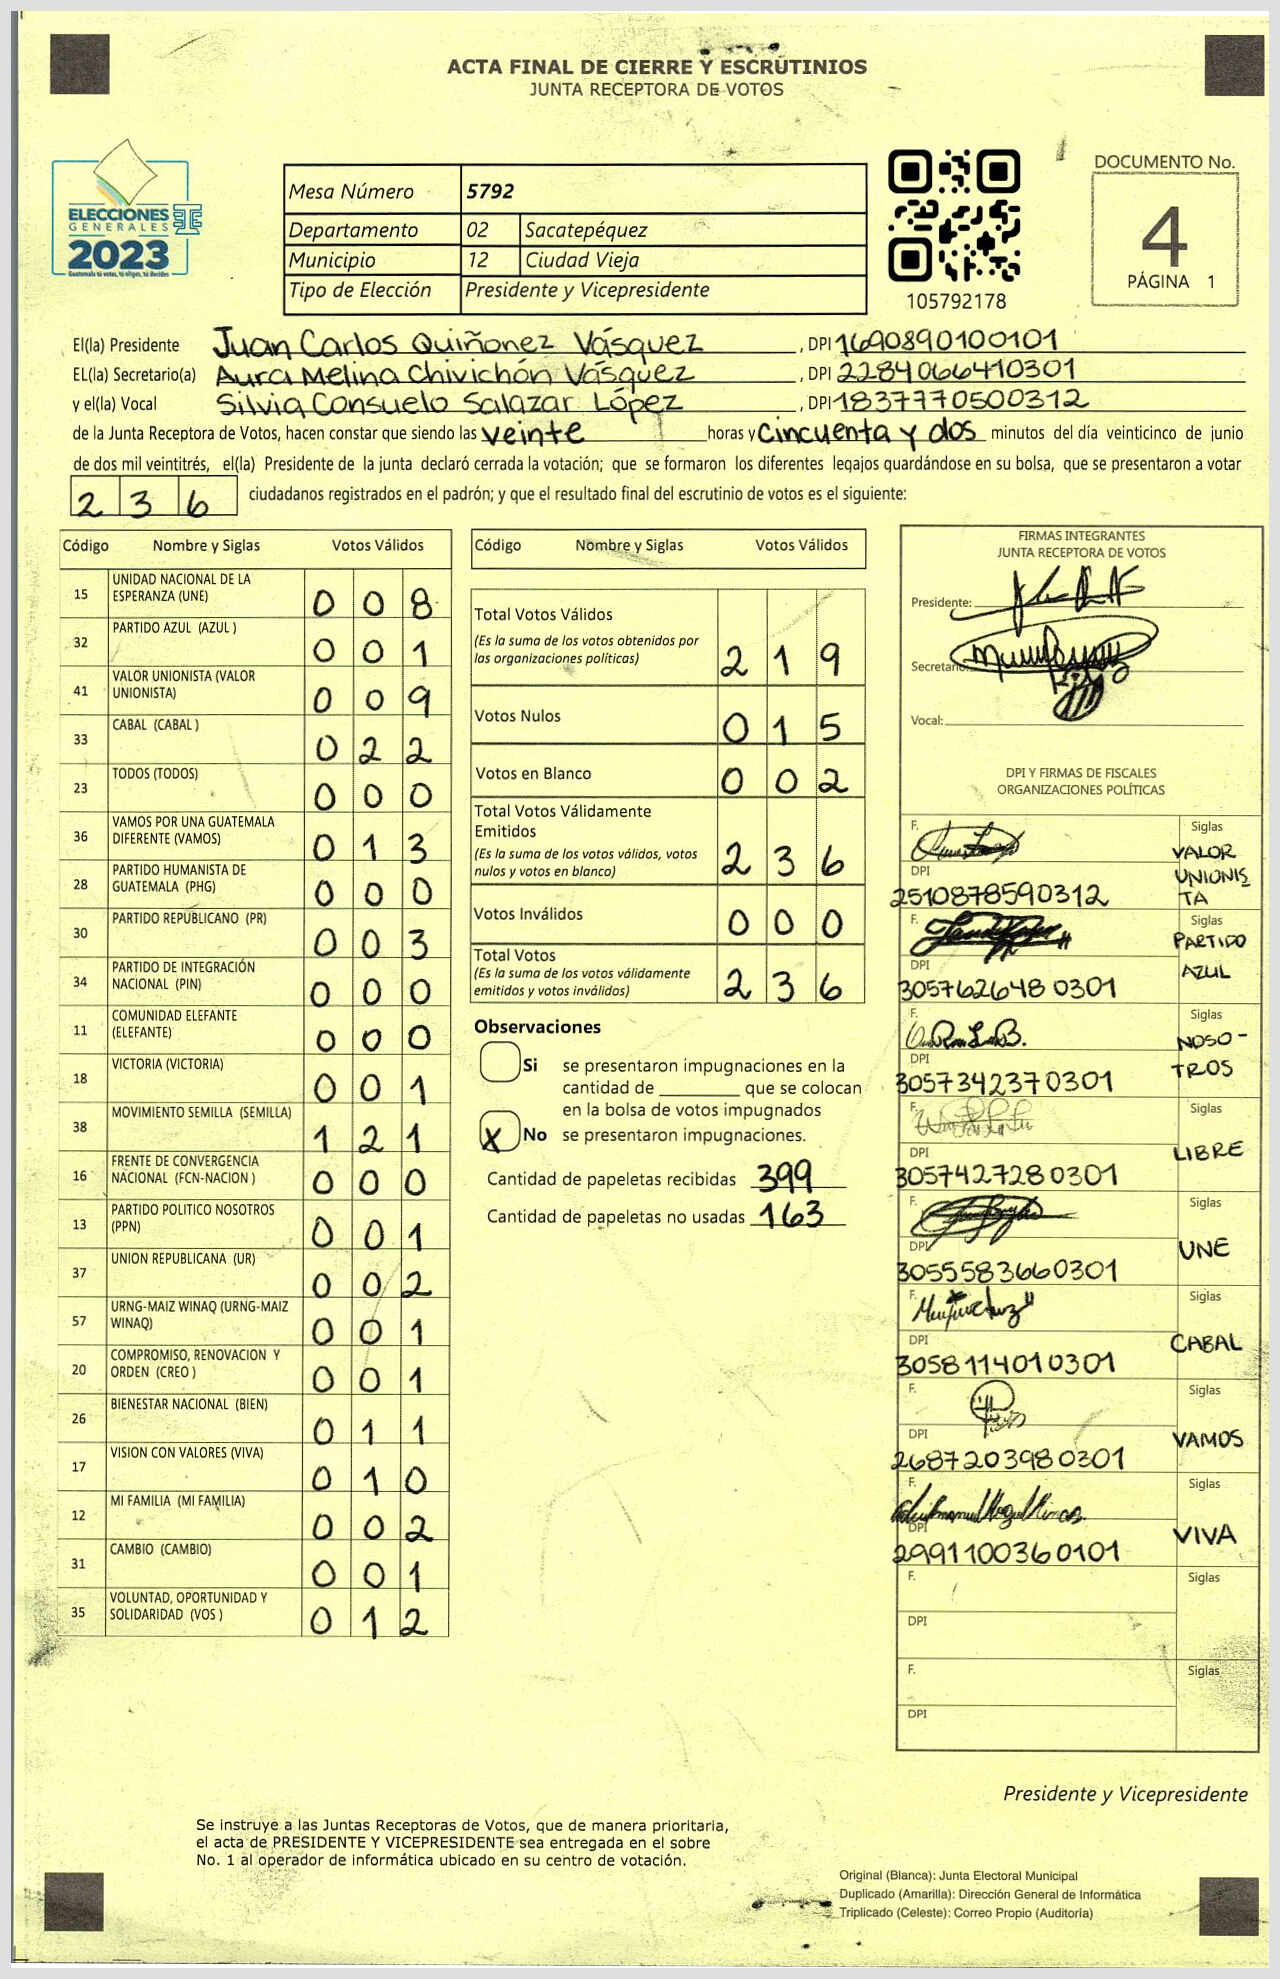 ACTA FINAL DE CIERRE Y ESCRUTINIOS
JUNTA RECEPTORA DE VOTOS
ELECCIONES
GENERALES
2023
Guatemala tú votes, tú eliges, tú decides
Mesa Número 5792
Departamento 02 Sacatepéquez
Municipio 12 Ciudad Vieja
Tipo de Elección Presidente y Vicepresidente
105792178
DOCUMENTO No.
4
PÁGINA 1
El(la) Presidente Juan Carlos Quiñonez Vásquez, DPI 1690890100101
EL(la) Secretario(a) Aura Melina Chivichón Vásquez, DPI 2284066410301
y el(la) Vocal Silvia Consuelo Salazar López, DPI 1837770500312
de la Junta Receptora de Votos, hacen constar que siendo las veinte horas y cincuenta y dos minutos del día veinticinco de junio
de dos mil veintitrés, el(la) Presidente de la junta declaró cerrada la votación; que se formaron los diferentes legajos guardándose en su bolsa, que se presentaron a votar
236 ciudadanos registrados en el padrón; y que el resultado final del escrutinio de votos es el siguiente:
Código Nombre y Siglas Votos Válidos
15 UNIDAD NACIONAL DE LA ESPERANZA (UNE) 008
32 PARTIDO AZUL (AZUL ) 001
41 VALOR UNIONISTA (VALOR UNIONISTA) 009
33 CABAL (CABAL ) 022
23 TODOS (TODOS) 000
36 VAMOS POR UNA GUATEMALA DIFERENTE (VAMOS) 013
28 PARTIDO HUMANISTA DE GUATEMALA (PHG) 000
30 PARTIDO REPUBLICANO (PR) 003
34 PARTIDO DE INTEGRACIÓN NACIONAL (PIN) 000
11 COMUNIDAD ELEFANTE (ELEFANTE) 000
18 VICTORIA (VICTORIA) 001
38 MOVIMIENTO SEMILLA (SEMILLA) 121
16 FRENTE DE CONVERGENCIA NACIONAL (FCN-NACION ) 000
13 PARTIDO POLITICO NOSOTROS (PPN) 001
37 UNION REPUBLICANA (UR) 002
57 URNG-MAIZ WINAQ (URNG-MAIZ WINAQ) 001
20 COMPROMISO, RENOVACION Y ORDEN (CREO ) 001
26 BIENESTAR NACIONAL (BIEN) 011
17 VISION CON VALORES (VIVA) 010
12 MI FAMILIA (MI FAMILIA) 002
31 CAMBIO (CAMBIO) 001
35 VOLUNTAD, OPORTUNIDAD Y SOLIDARIDAD (VOS ) 012
Código Nombre y Siglas Votos Válidos
Total Votos Válidos
(Es la suma de los votos obtenidos por
las organizaciones políticas) 219
Votos Nulos 015
Votos en Blanco 002
Total Votos Válidamente
Emitidos
(Es la suma de los votos válidos, votos
nulos y votos en blanco) 236
Votos Inválidos 000
Total Votos
(Es la suma de los votos válidamente
emitidos y votos inválidos) 236
Observaciones
Si se presentaron impugnaciones en la
cantidad de ________ que se colocan
en la bolsa de votos impugnados
X No se presentaron impugnaciones.
Cantidad de papeletas recibidas 399
Cantidad de papeletas no usadas 163
FIRMAS INTEGRANTES
JUNTA RECEPTORA DE VOTOS
Presidente:
Secretario:
Vocal:
DPI Y FIRMAS DE FISCALES
ORGANIZACIONES POLÍTICAS
F. Siglas
VALOR
UNIONIS
TA
DPI
2510878590312
F. Siglas
PARTIDO
AZUL
DPI
3057626480301
F. Siglas
NOSO-
TROS
DPI
3057342370301
F. Siglas
LIBRE
DPI
3057427280301
F. Siglas
UNE
DPI
3055583660301
F. Siglas
CABAL
DPI
3058114010301
F. Siglas
VAMOS
DPI
2687203980301
F. Siglas
VIVA
DPI
2991100360101
F. Siglas
DPI
F. Siglas
DPI
Presidente y Vicepresidente
Se instruye a las Juntas Receptoras de Votos, que de manera prioritaria,
el acta de PRESIDENTE Y VICEPRESIDENTE sea entregada en el sobre
No. 1 al operador de informática ubicado en su centro de votación.
Original (Blanca): Junta Electoral Municipal
Duplicado (Amarilla): Dirección General de Informática
Triplicado (Celeste): Correo Propio (Auditoría)